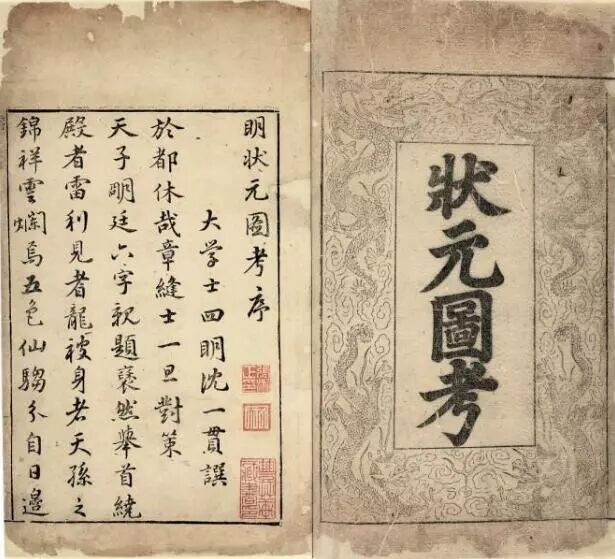 狀元圖考
明狀元圖考序
大学士四明沈一貫譔
於都休哉章縫士一旦對策
天子明廷六字親題褎然舉首繞
殿者雷利見者龍被身者天孫之
錦祥雲爛焉五色仙騶夰自日邊